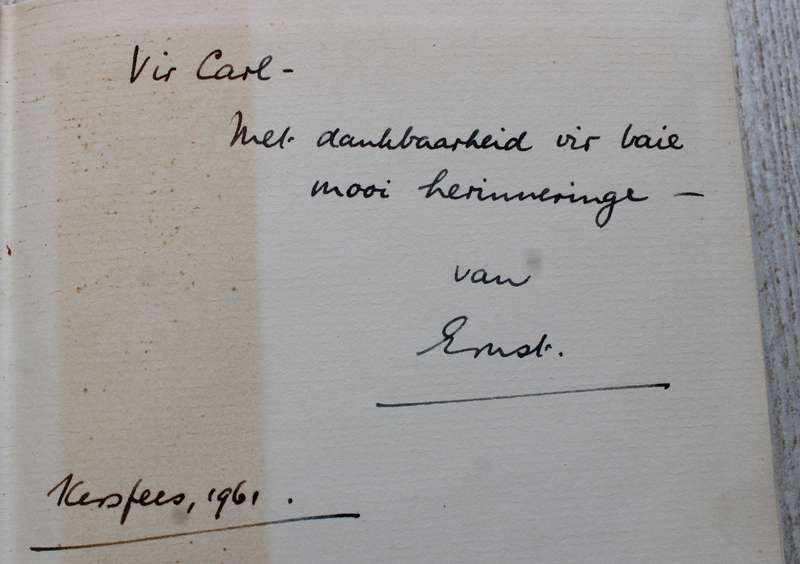 Vir Carl -
Met dankbaarheid vir baie
mooi herinneringe -
van
Ernst.
Kersfees, 1961.